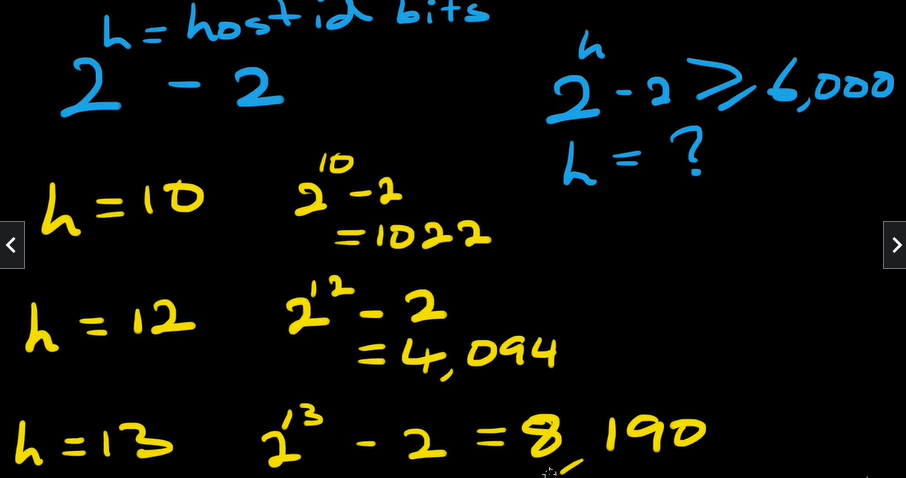 h = host id bits
2^h - 2
2^h - 2 ≥ 6,000
h = ?
h = 10 2^10 - 2
= 1022
h = 12 2^12 - 2
= 4,094
h = 13 2^13 - 2 = 8,190